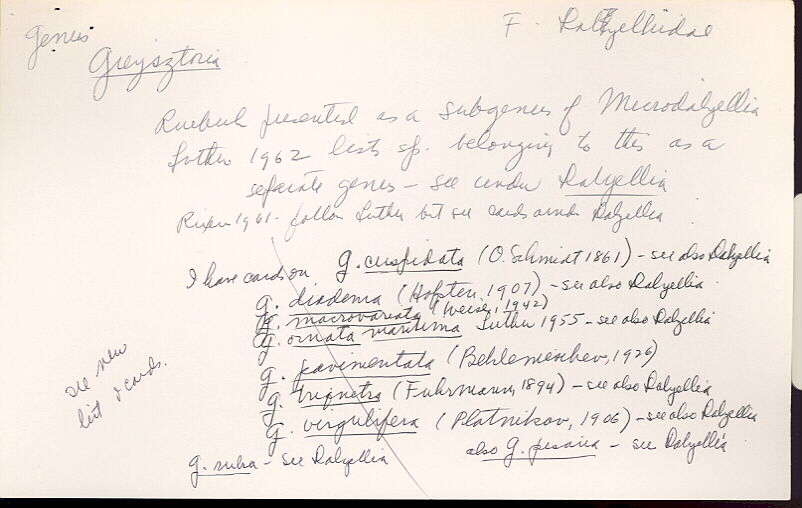 Genus
F. Dalyelliidae
Gieysztoria
Ruebush presented as a subgenus of Microdalyellia
Luther 1962 lists sp. belonging to this as a
separate genus - see under Dalyellia
Rixen 1961 - follow Luther but see cards under Dalyellia
I have cards on G. cuspidata (O. Schmidt 1861) - see also Dalyellia
G. diadema (Hofsten, 1907) - see also Dalyellia
G. macrovariata (Weise, 1942)
G. ornata maritima Luther 1955 - see also Dalyellia
G. pavimentata (Beklemischev, 1926)
G. triquetra (Fuhrmann, 1894) - see also Dalyellia
G. virgulifera (Plotnikov, 1906) - see also Dalyellia
G. rubra - see Dalyellia
also G. - see Dalyellia
see new
list & cards.